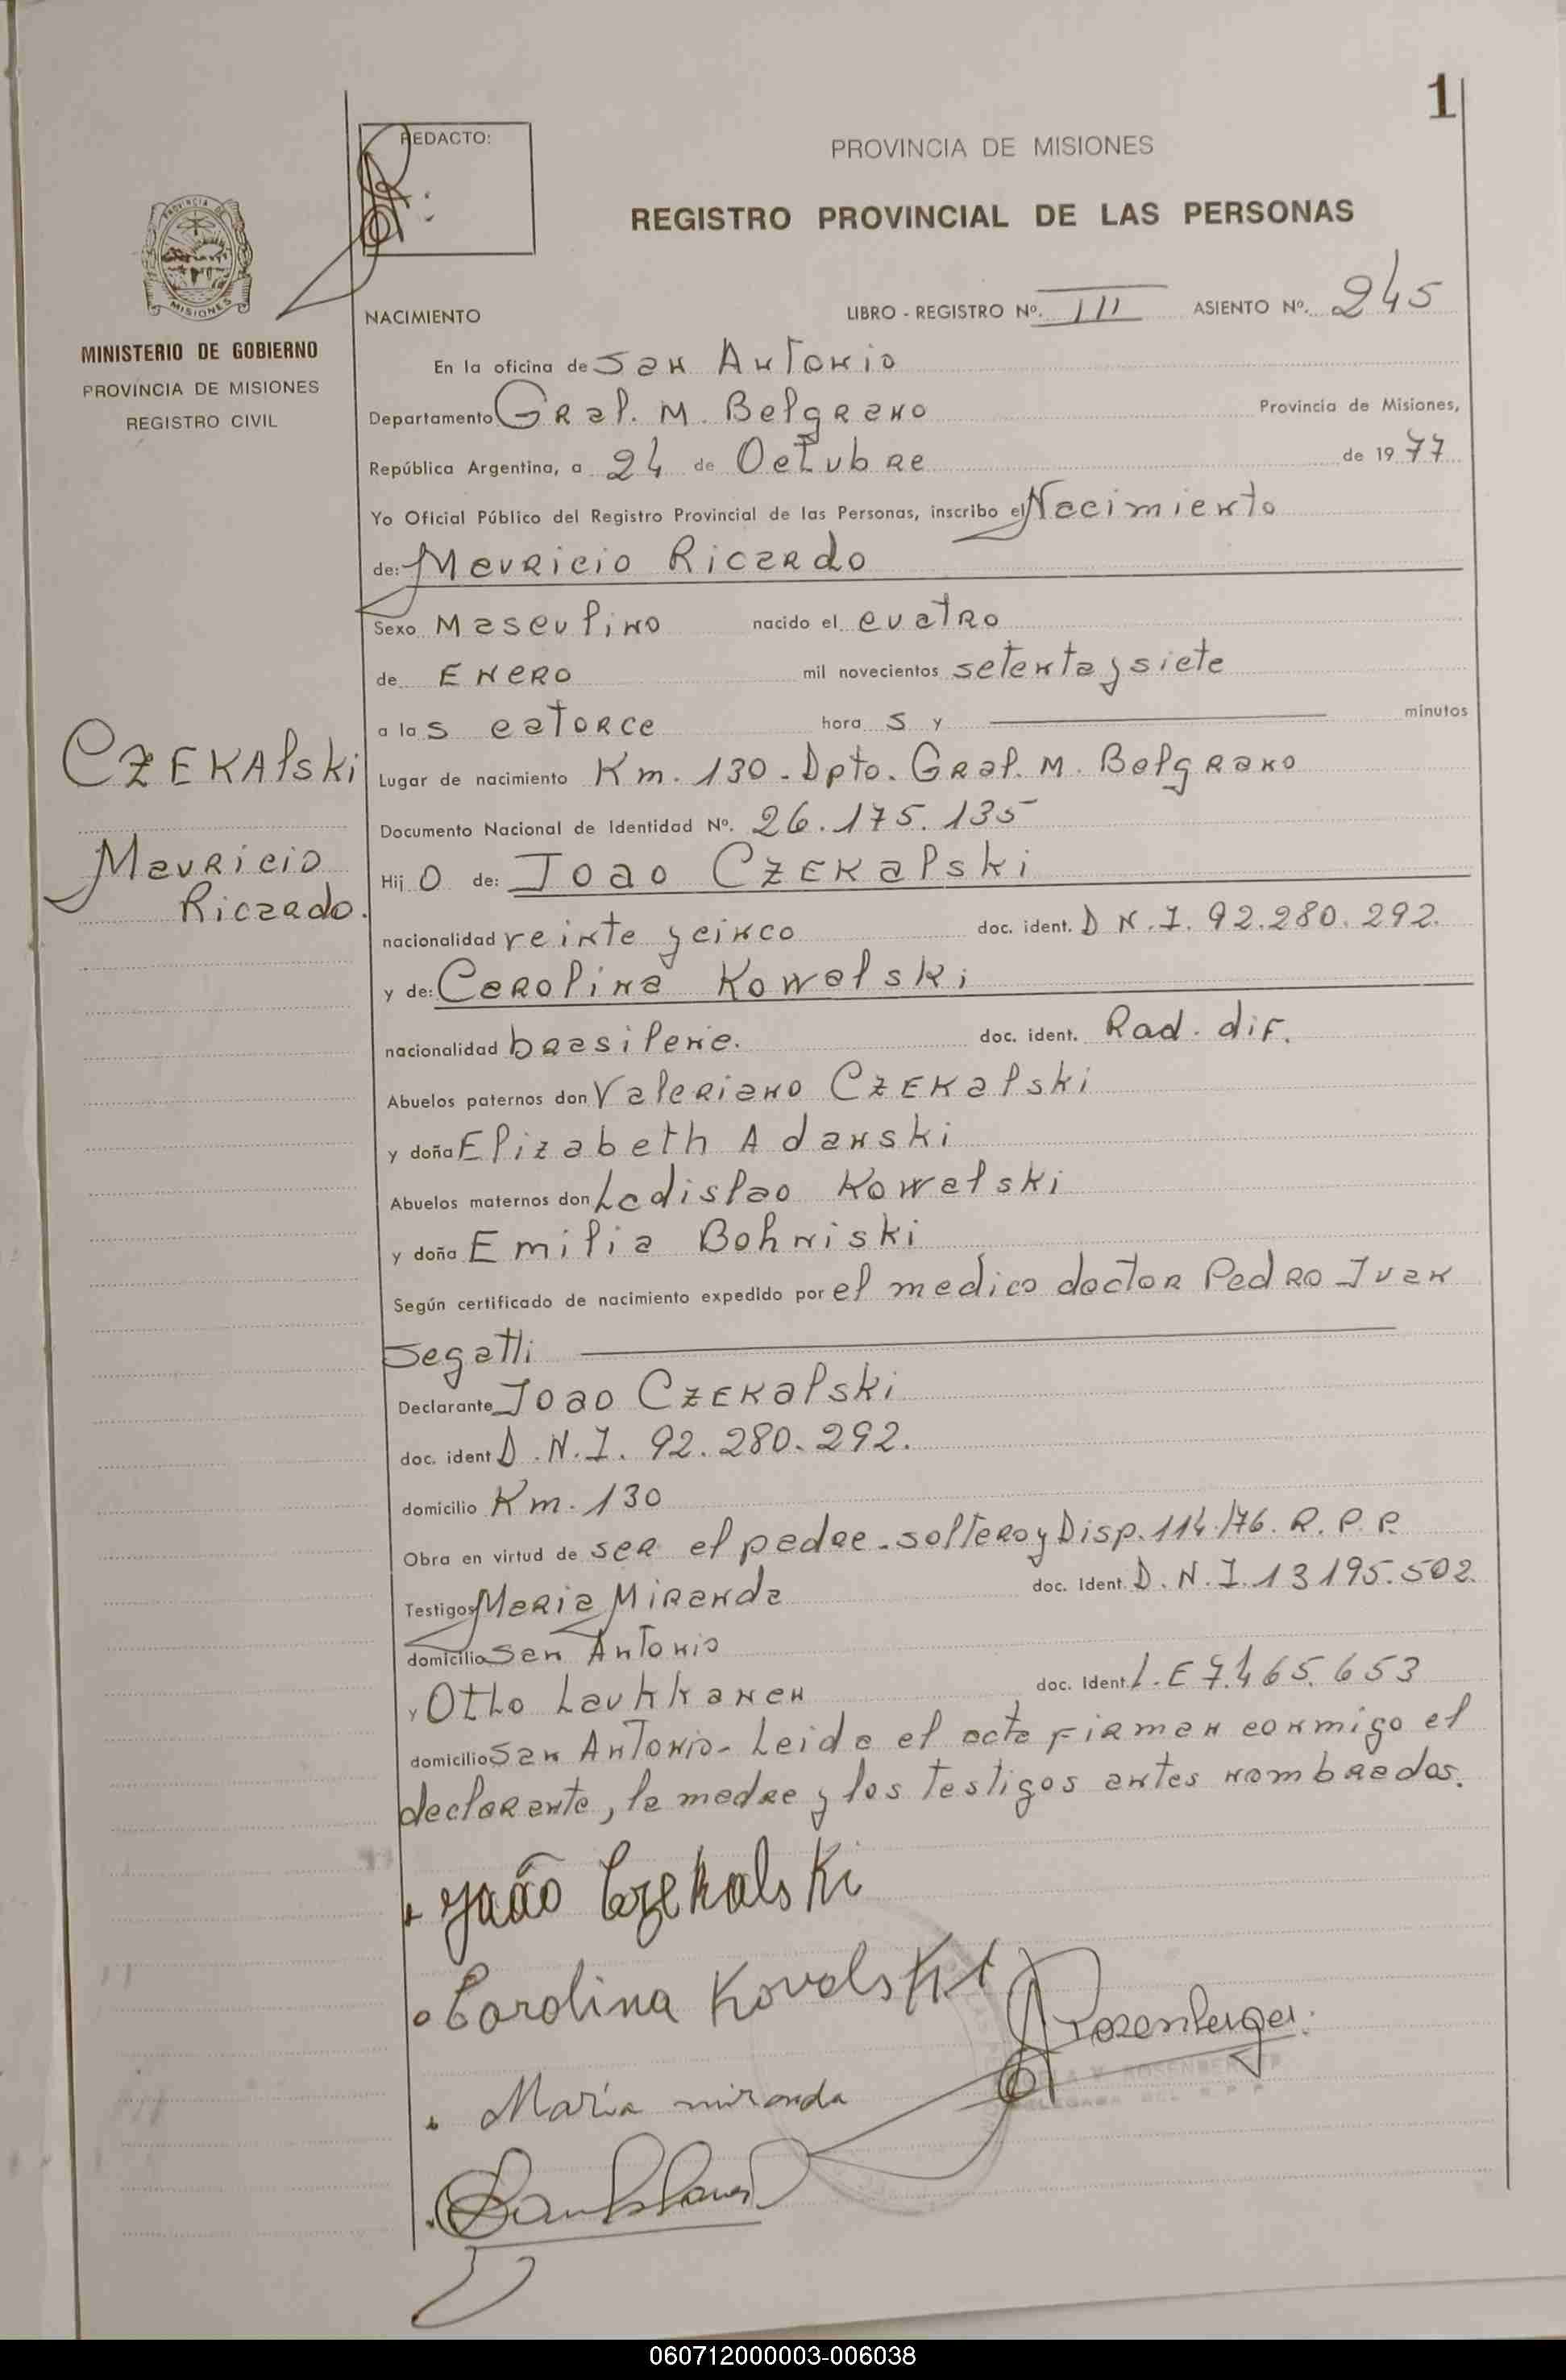 1
REDACTO:
PROVINCIA DE MISIONES
REGISTRO PROVINCIAL DE LAS PERSONAS
PROVINCIA DE
MISIONES
MINISTERIO DE GOBIERNO
PROVINCIA DE MISIONES
REGISTRO CIVIL
NACIMIENTO LIBRO - REGISTRO Nº. III ASIENTO Nº. 245
En la oficina de San Antonio
Departamento Gral. M. Belgrano Provincia de Misiones,
República Argentina, a 24 de Octubre de 1977
Yo Oficial Público del Registro Provincial de las Personas, inscribo el Nacimiento
de: Mauricio Ricardo
Sexo Masculino nacido el cuatro
de Enero mil novecientos setenta y siete
a las catorce horas y minutos
CZEKAlski
Lugar de nacimiento Km. 130 - Dpto. Gral. M. Belgrano
Documento Nacional de Identidad Nº. 26.175.135
Mauricio
Ricardo.
Hijo de: Joao Czekalski
nacionalidad veinte y cinco doc. ident. D N.I. 92.280.292.
y de: Carolina Kowalski
nacionalidad brasilene. doc. ident. Rad. dif.
Abuelos paternos don Valeriano Czekalski
y doña Elizabeth Adanski
Abuelos maternos don Ladislao Kowalski
y doña Emilia Bohniski
Según certificado de nacimiento expedido por el medico doctor Pedro Ivan
Segatti
Declarante Joao Czekalski
doc. ident D.N.I. 92.280.292.
domicilio Km. 130
Obra en virtud de ser el padre - soltero y Disp. 114/76. R.P.P.
Testigos Maria Miranda doc. Ident. D.N.I. 13195.502.
domicilio San Antonio
y Otto Laukkanen doc. Ident. L.E 7.465.653
domicilio San Antonio - Leida el acta firman conmigo el
declarante, la madre y los testigos antes nombrados.
João Czekalski
Carolina Kovalski
Rosenberger
ROSENBERGER
María miranda
060712000003-006038